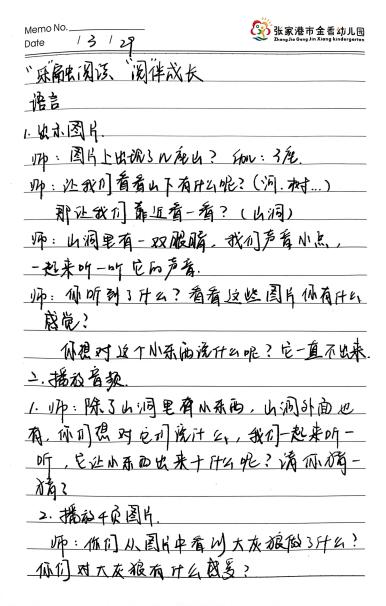 Memo No.
张家港市金香幼儿园
Zhang Jia Gang Jin Xiang kindergarten
Date / 3 / 29
“乐”融融阅读 “阅”伴成长
语言
1. 出示图片.
师：图片上出现了几座山？ 幼：3座.
师：让我们看看山下有什么呢？(河.树...)
那让我们靠近看一看？(山洞)
师：山洞里有一双眼睛，我们声音小点，
一起来听一听它的声音.
师：你听到了什么？看看这些图片你有什么
感觉？
你想对这个小东西说什么呢？它一直不出来.
二. 播放音频.
1. 师：除了山洞里有小东西，山洞外面也
有，你们想对它们说什么，我们一起来听一
听，它让小东西出来干什么呢？请你猜一
猜？
2. 播放4页图片.
师：你们从图片中看到大灰狼做了什么？
你们对大灰狼有什么感受？